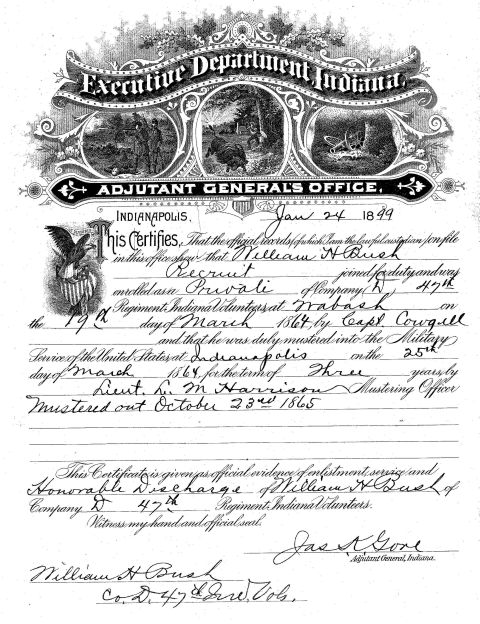 Executive Department, Indiana.
ADJUTANT GENERAL'S OFFICE,
INDIANAPOLIS, Jan 24 1899
This Certifies, That the official records (of which I am the lawful custodian) on file
in this office show that William H Bush
Recruit joined for duty and was
enrolled as a Private of Company D 47th
Regiment, Indiana Volunteers, at Wabash on
the 19th day of March 1864, by Capt Cowgill
and that he was duly mustered into the Military
Service of the United States, at Indianapolis on the 25th
day of March 1864, for the term of Three years, by
Lieut. L. M Harrison Mustering Officer
Mustered out October 23rd 1865
This Certificate is given, as official evidence of enlistment, service and
Honorable Discharge of William H Bush of
Company D 47th Regiment, Indiana Volunteers.
Witness my hand and official seal.
Jas K Gore
Adjutant General, Indiana.
William H Bush
Co. D. 47th Ind. Vols.